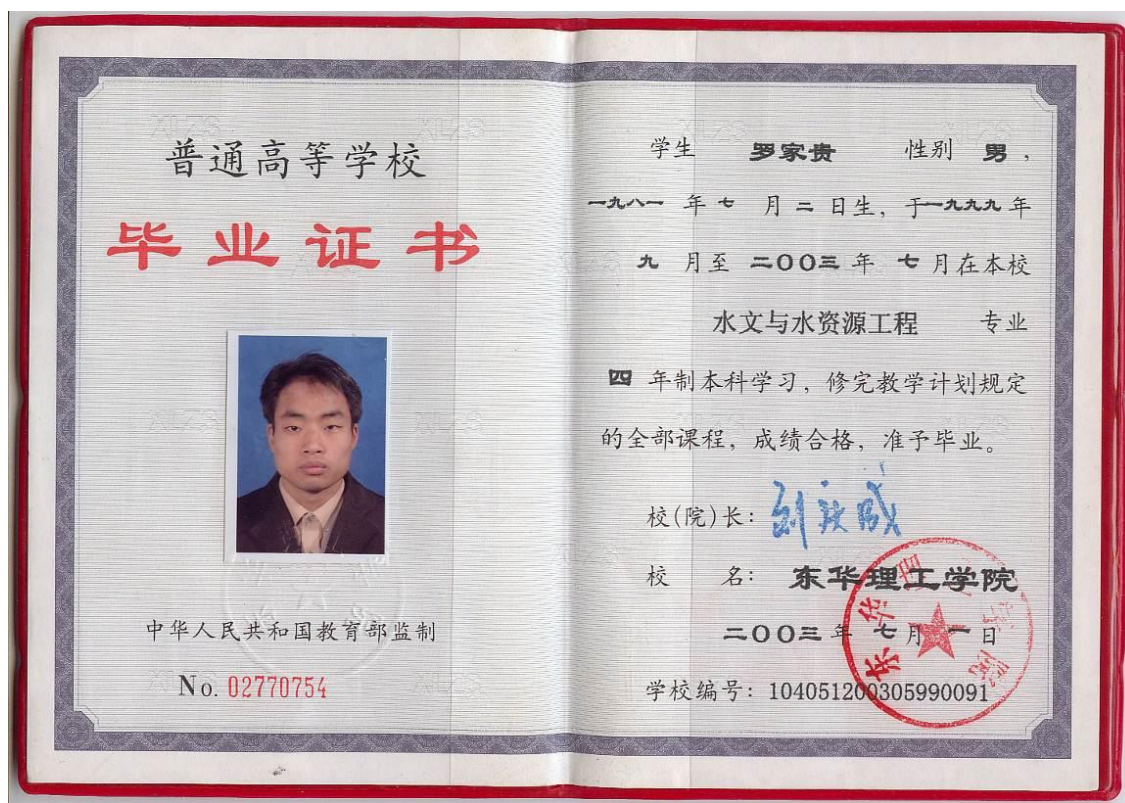 普通高等学校
毕业证书
中华人民共和国教育部监制
No. 02770754
学生 罗家贵 性别 男，
一九八一 年 七 月 二 日生，于一九九九年
九 月至 二〇〇三 年 七 月在本校
水文与水资源工程 专业
四 年制本科学习，修完教学计划规定
的全部课程，成绩合格，准予毕业。
校(院)长：
校 名：东华理工学院
二〇〇三 年 七 月 一 日
学校编号：104051200305990091
东华理工学院
XLZS